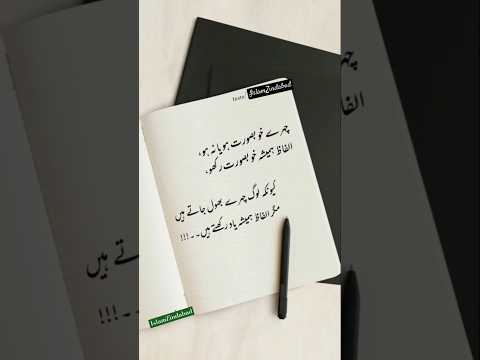 Insta: IslamZindabad
چہرے خوبصورت ہو یا نہ ہو،
الفاظ ہمیشہ خوبصورت رکھو،
کیونکہ لوگ چہرے بھول جاتے ہیں
مگر الفاظ ہمیشہ یاد رکھتے ہیں۔۔!!!
IslamZindabad